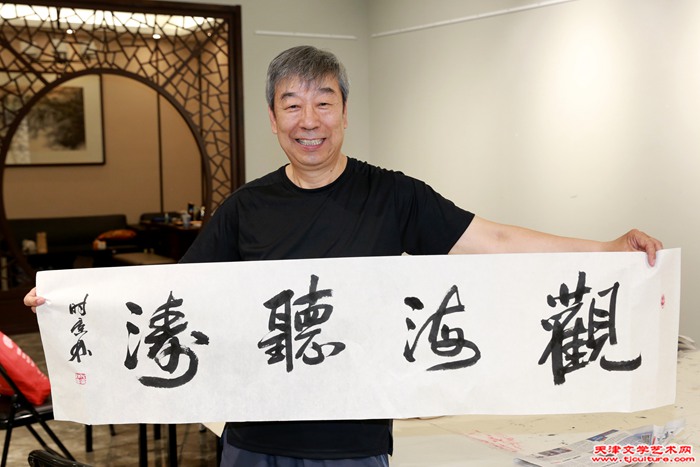 觀海聽濤
天津文学艺术网
www.tjculture.com